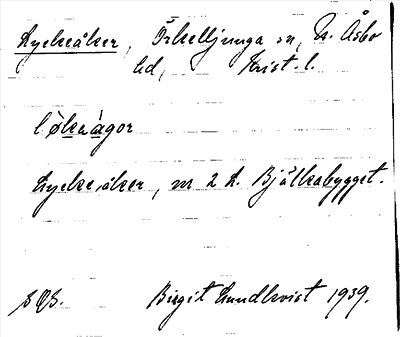 Lyckeåker, Örkelljunga sn, N. Åsbo
hd, Krist. l.
l økaågor
Lyckeåker, m 2 h. Bjälkabygget.
Birgit Lundkvist 1939.